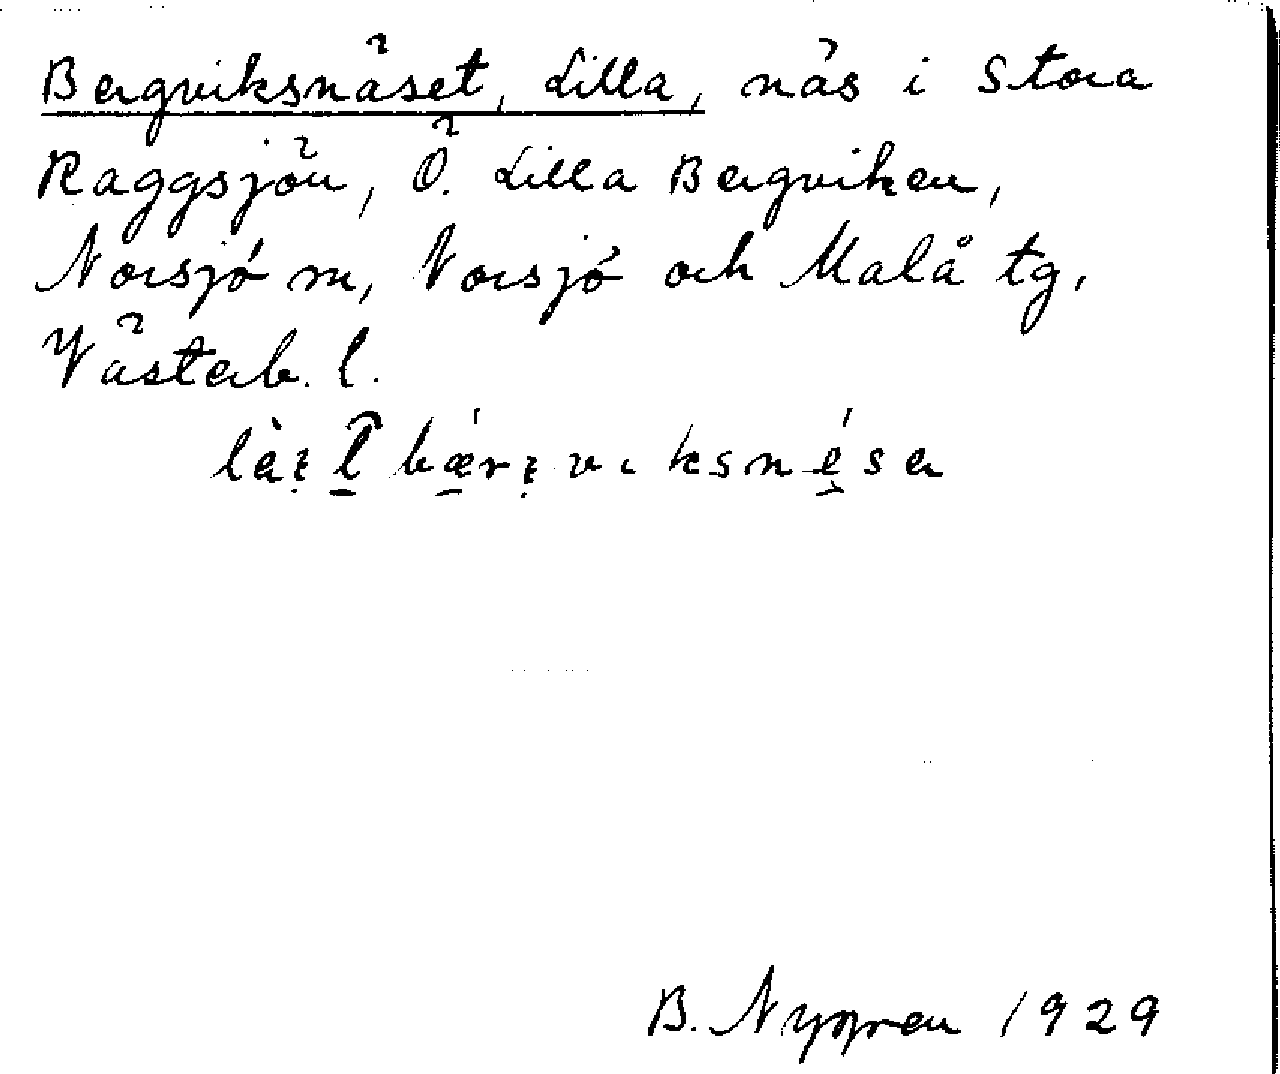 Bergviksnäset, Lilla, näs i Stora
Raggsjön, Ö. Lilla Bergviken,
Norsjö sn, Norsjö och Malå tg,
Västerb. l.
B. Nygren 1929